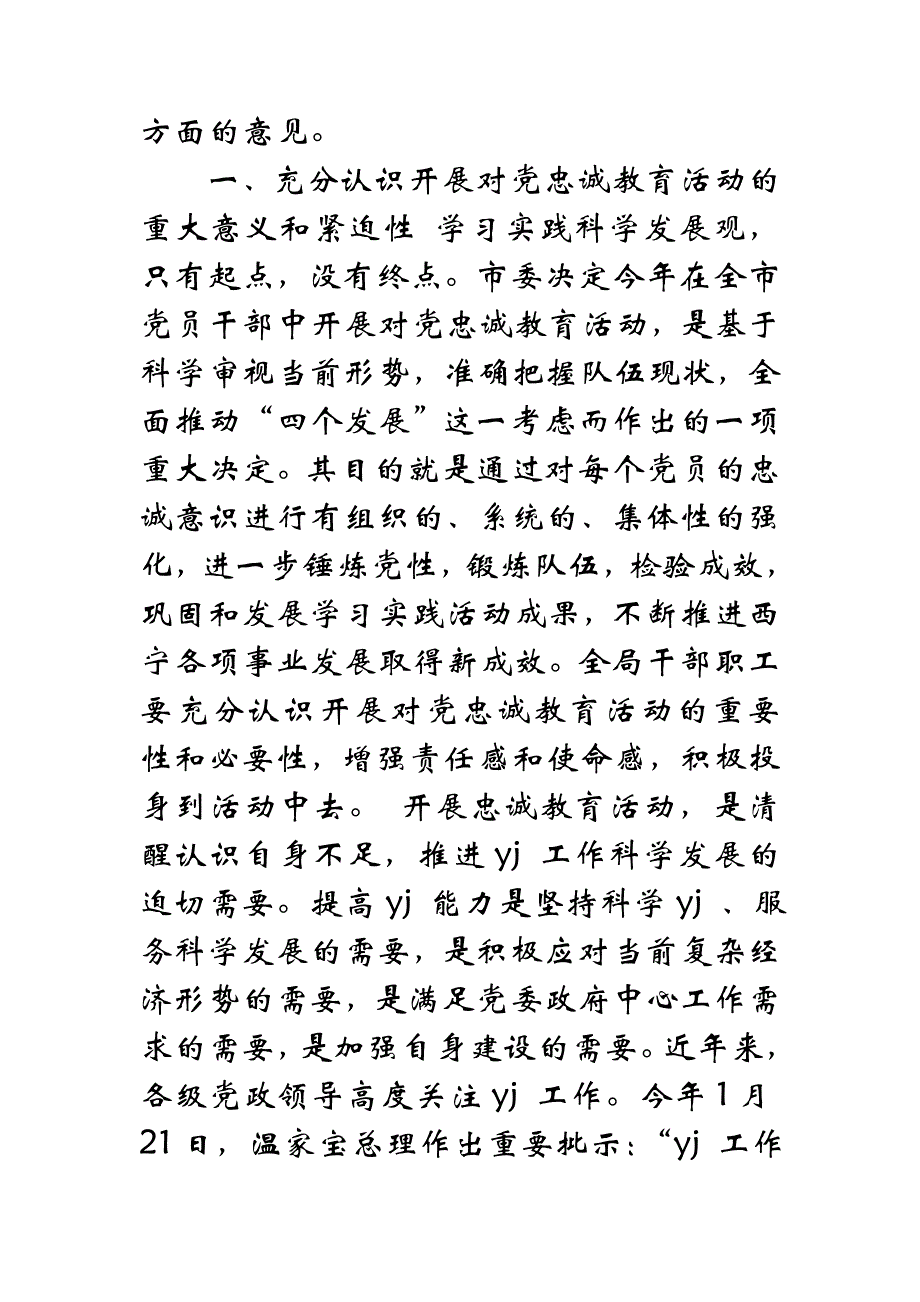 方面的意见。
一、充分认识开展对党忠诚教育活动的
重大意义和紧迫性 学习实践科学发展观，
只有起点，没有终点。市委决定今年在全市
党员干部中开展对党忠诚教育活动，是基于
科学审视当前形势，准确把握队伍现状，全
面推动“四个发展”这一考虑而作出的一项
重大决定。其目的就是通过对每个党员的忠
诚意识进行有组织的、系统的、集体性的强
化，进一步锤炼党性，锻炼队伍，检验成效，
巩固和发展学习实践活动成果，不断推进西
宁各项事业发展取得新成效。全局干部职工
要充分认识开展对党忠诚教育活动的重要
性和必要性，增强责任感和使命感，积极投
身到活动中去。 开展忠诚教育活动，是清
醒认识自身不足，推进 yj 工作科学发展的
迫切需要。提高 yj 能力是坚持科学 yj 、服
务科学发展的需要，是积极应对当前复杂经
济形势的需要，是满足党委政府中心工作需
求的需要，是加强自身建设的需要。近年来，
各级党政领导高度关注 yj 工作。今年 1 月
21 日，温家宝总理作出重要批示：“yj 工作